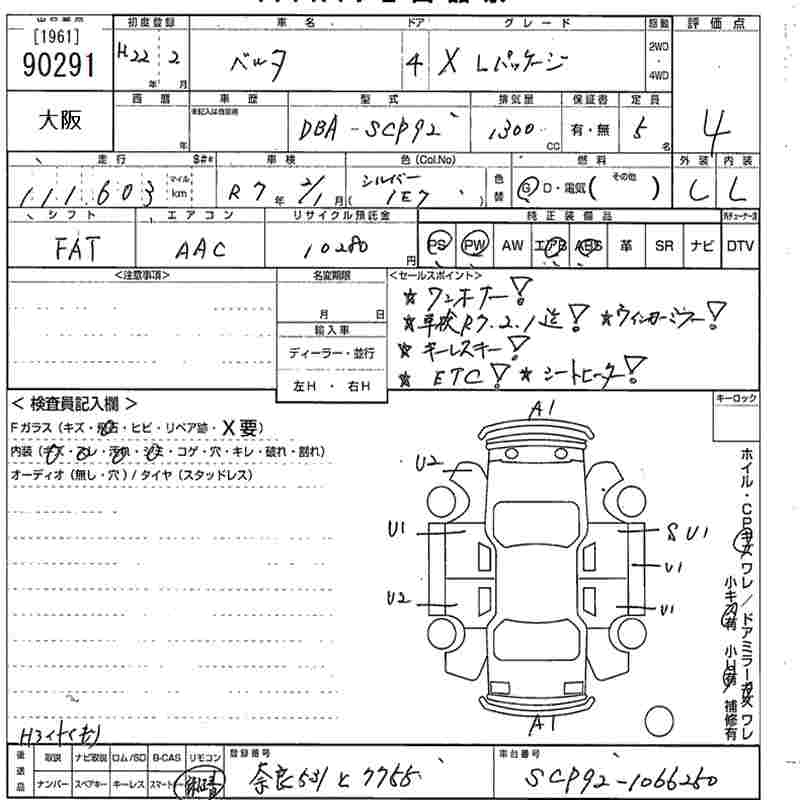 [1961]
90291
初度登録 車名 ドア グレード 駆動 評価点
H22 年 2 月 ベルタ 4 X Lパッケージ 2WD・4WD 4
大阪
西暦 車歴 型式 排気量 保証書 定員
年 未記入は自家用 DBA-SCP92 1300 CC 有・無 5 名
走行 S#* 車検 色(Col.No) 燃料 外装 内装
111603 マイル km R7年 2/1月 シルバー (1E7) 色替 G D・電気( その他 ) L
シフト エアコン リサイクル預託金 純正装備品
FAT AAC 10280 円 PS PW AW エアB ABS 革 SR ナビ DTV
<注意事項> 名変期限 <セールスポイント>
月 日
輸入車
ディーラー・並行
左H・右H
☆ワンオナー!
☆車検R7.2.1迄! ☆ウィンカーミラー!
☆キーレスキー!
☆ETC! ☆シートヒーター!
<検査員記入欄> キーロック
Fガラス(キズ・飛石・ヒビ・リペア跡・X要)
内装(キズ・スレ・汚れ・シミ・コゲ・穴・キレ・破れ・割れ)
オーディオ(無し・穴)/タイヤ(スタッドレス)
A1
U2
U1 S U1
U1
U2 U1
A1
ホイル・CPキズ ワレ/ドアミラーキズ ワレ
小キズ有 小U有 補修有
後送品 取説 ナビ取説 ロム/SD B-CAS リモコン 登録番号 車台番号
ナンバー スペアキー キーレス スマートキー 奈良531と7755 SCP92-1066250